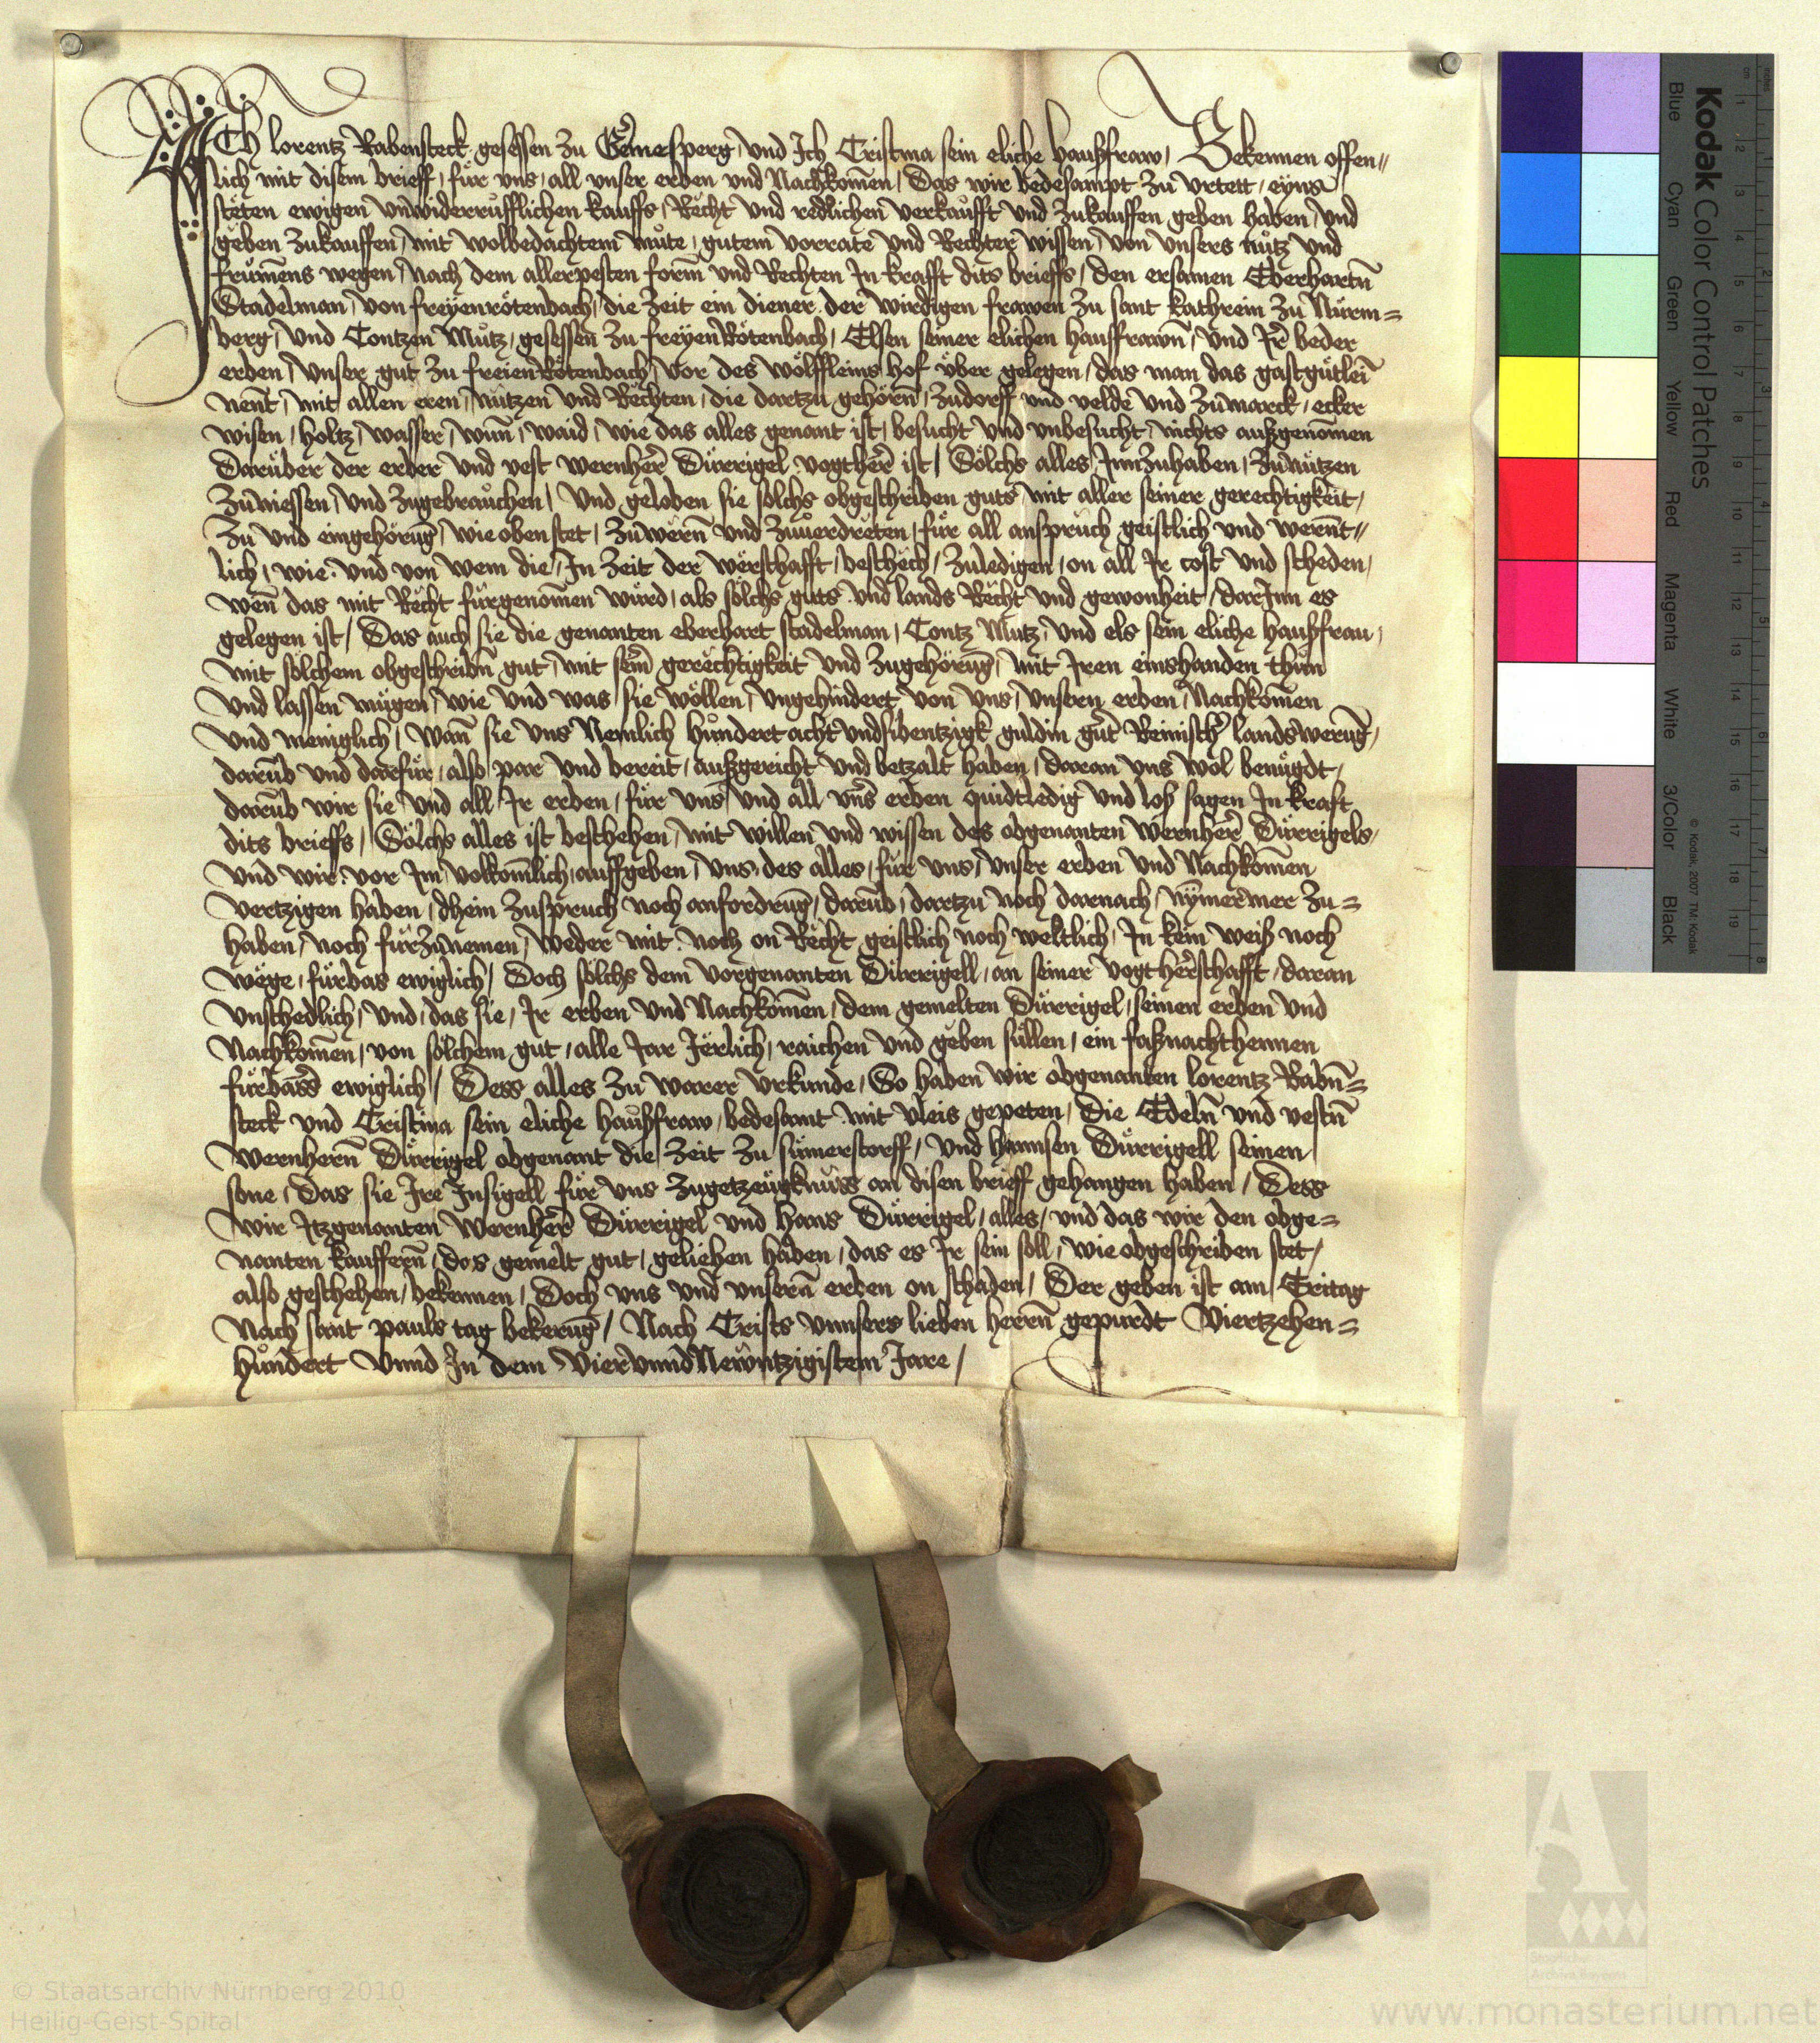 ICh lorentz Rabensteck gesessen zu Gemesperg, vnd Ich Cristina sein eliche haußfraw, Bekennen offen„
lich mit disem brieff, für vns, all vnser erben vnd Nachkom̄en, Das wir bedesampt zu vrtett, eyns
steten ewigen vnwiderrufflichen kauffs, Recht vnd redlichen verkaufft vnd zukauffen geben haben, vnd
geben zukauffen, mit wolbedachtem můte, gutem vorrate vnd Rechter wissen, von vnsers nůtz vnd
frum̄ens wegen, Nach dem allerpesten form̄ vnd Rechten In krafft dits brieffs, den ersamen Eberhartn̄
Stadelman, von freyenrötenbach, die zeit ein diener der wirdigen frawen zu sant kathrein zu Nürm=
berg, vnd Contzen Můtz, gesessen zu freyenRötenbach, Elsen seiner elichen hausfrawn̄, vnd Ir̄ beder
erben, vnser gut zu freienRötenbach, vor des wölffleins hof über gelegen, das man das gastgütlein̄
nent, mit allen eren, nützen vnd Rechten, die dartzu gehörn̄, zudorff vnd velde vnd zůmarck, ecker
wisen, holtz, wasser, wun̄, waid, wie das alles genant ist, besucht vnd vnbesucht, nichts außgenom̄en
Darüber der erber vnd vest wernher̄ Dürrigel vogther̄ ist, Sölchs alles Innzuhaben, zůnützen
zůniessen, vnd zugebrauchen, Vnd geloben sie sölchs obgeschriben guts mit aller seiner gerechtigkeit,
zu vnd eingehöruḡ, wie oben stet, zůwern̄ vnd zuuerdreten, für all anspruch geistlich vnd wern̄t„
lich, wie vnd von wem die, In zeit der werschafft, beschech, zuledigen, on all Ir cost vnd scheden,
wen̄ das mit Recht fürgenom̄en würd, als sölchs guts vnd lands Recht vnd gewonheit, darInn es
gelegen ist, Das auch sie die genanten eberhart stadelman, Contz Mutz, vnd els sein eliche haußfrau,
mit sölchem obgeschribn̄ gut, mit sein̄ gerechtigkeit vnd zugehöruḡ, mit Iren einshanden thun
vnd lassen mügen, wie vnd was sie wöllen, vngehindert von vns, vnsern erben, Nachkom̄en
vnd meniglich, wan̄ sie vns Nemlich hůndert acht vndsibentzigk guldin gůt̄ Reinisch̄ landsweruḡ,
darūb vnd darfür, also par vnd bereit, außgericht vnd betzalt haben, daran vns wol benügdt,
darūb wir sie vnd all Ir erben, für vns vnd all vns̄ erben quidt ledig vnd loß sagen In kraft
dits brieffs, Sölchs alles ist beschehen, mit willen vnd wissen des obgenanten wernher̄ Dürrigels,
vnd wir vor Im volkom̄lich auffgeben, vns des alles, für vns, vnser erben vnd Nachkom̄en
vertzigen haben, dhein zuspruch noch anfordruḡ, darūb, dartzu noch darnach, nym̄ermer zu=
haben, noch fürzůnemen, weder mit noch on Recht geistlich noch weltlich, In kein weiß noch
wege, fürbas ewiglich, Doch sölchs dem vorgenanten Dürrigell, an seiner vogther̄schafft, daran
vnschedlich, vnd, das sie, Ir erben vnd Nachkom̄en, dem gemelten Dürrigel, seinen erben vnd
Nachkom̄en, von sölchem gut, alle Jar Jerlich, raichen vnd geben süllen, ein faßnachthennen
fürbass ewiglich, Dess alles zu warer vrkunde, So haben wir obgenanten lorentz Rabn̄=
steck vnd Cristina sein eliche haußfraw, bedesamt mit vleis gepeten, Die Edeln̄ vnd vestn̄
wernhern̄ Dürrigel obgenant die zeit zu sümerstorff, vnd hannsen Dürrigell seinen
sone, Das sie Ire Insigell für vns zugetzeügknuss an disen brieff gehangen haben, Dess
wir Itzgenanten wernher̄ Dürrigel vnd hans Dürrigel, alles, vnd das wir den obge=
nanten kauffern̄, das gemelt gut, geliehen haben, das es Ir sein soll, wie obgeschriben stet,
also geschehen, bekennen, Doch vns vnd vnsern̄ erben on schaden, Der geben ist am Eritag
Nach sant pauls tag bekeruḡ, Nach Crists vnnsers lieben herrn̄ gepurdt Viertzehen=
hůndert Vnnd In dem ViervnndNewntzigistem Jare,
Kodak Color Control Patches
Blue Cyan Green Yellow Red Magenta White 3/Color Black
© Kodak, 2007 TM: Kodak
© Staatsarchiv Nürnberg 2010
Heilig-Geist-Spital
www.monasterium.net